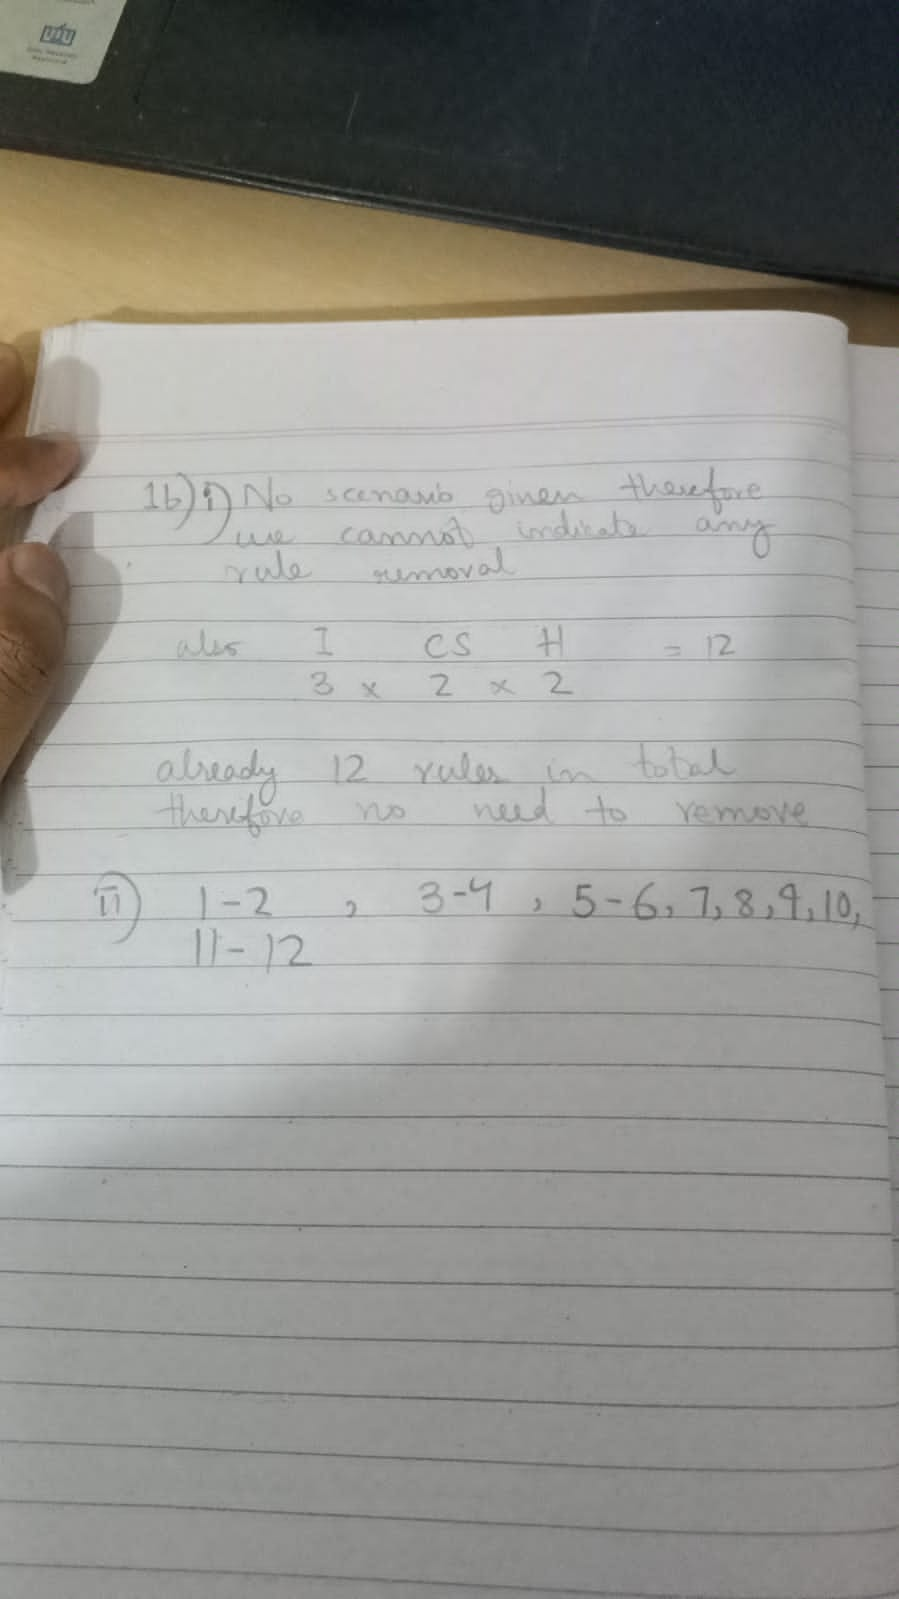 1b) i) No scenario given therefore
we cannot indicate any
rule removal
also I CS H = 12
3 x 2 x 2
already 12 rules in total
therefore no need to remove
ii) 1-2 , 3-4 , 5-6, 7, 8, 9, 10,
11-12